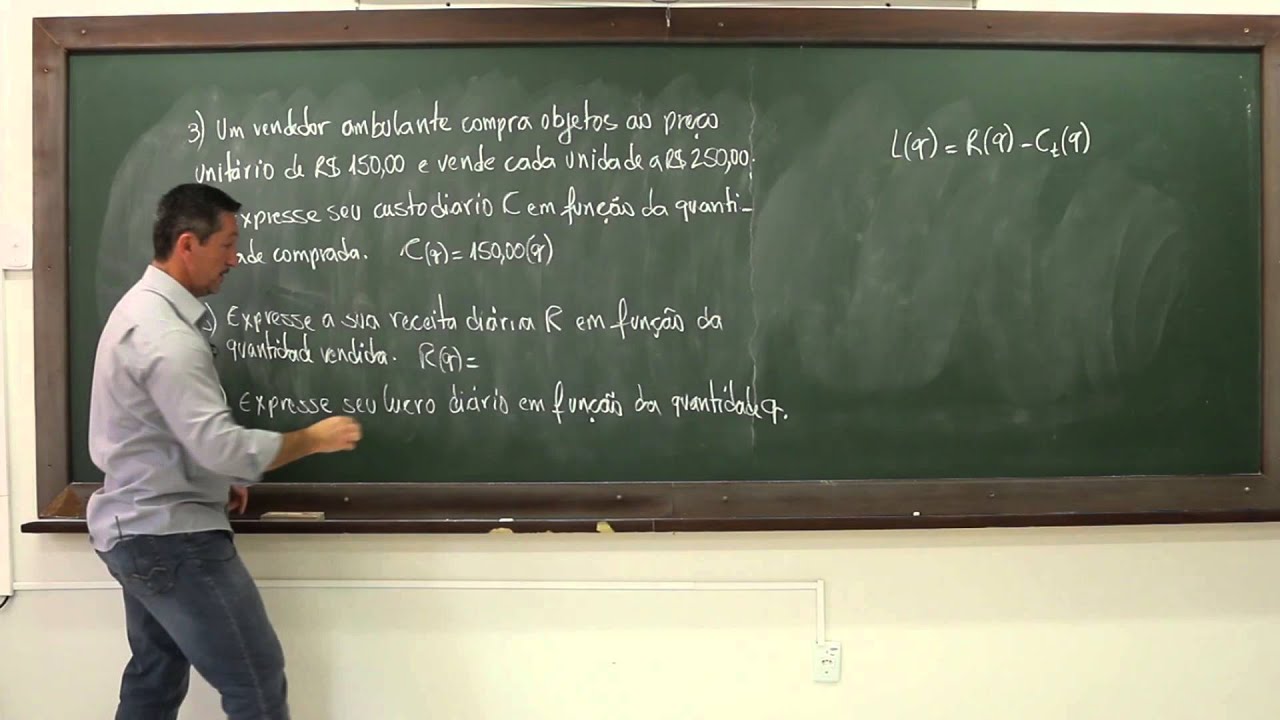 3) Um vendedor ambulante compra objetos ao preço
unitário de R$ 150,00 e vende cada unidade a R$ 250,00.
Expresse seu custo diario C em função da quanti-
ade comprada. C(q) = 150,00(q)
) Expresse a sua receita diária R em função da
quantidade vendida. R(q) =
) Expresse seu lucro diário em função da quantidade q.
L(q) = R(q) - Ct(q)